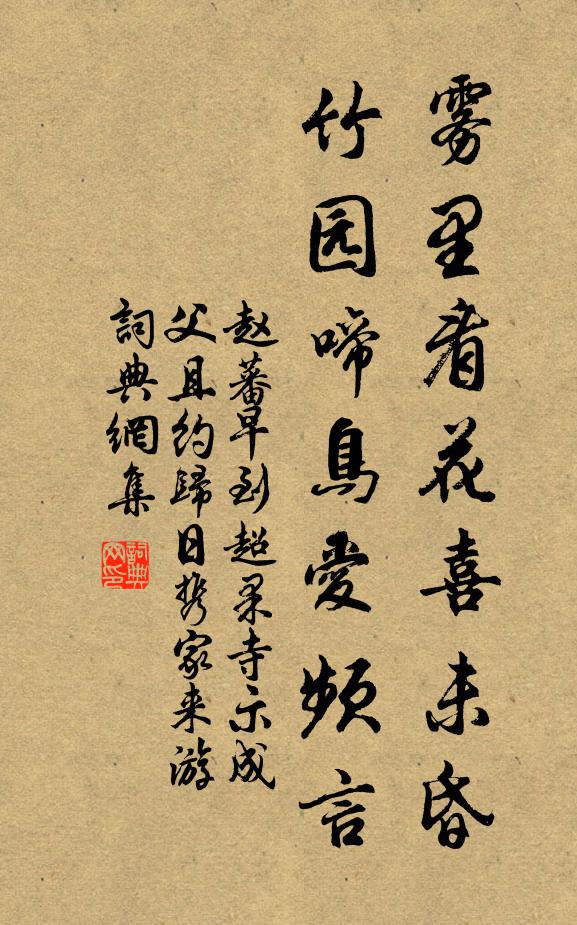 雾里看花喜未昏
竹园啼鳥愛频言
赵蕃早到超果寺示成
父且约歸日携家来游
詞典網集
詞典網印